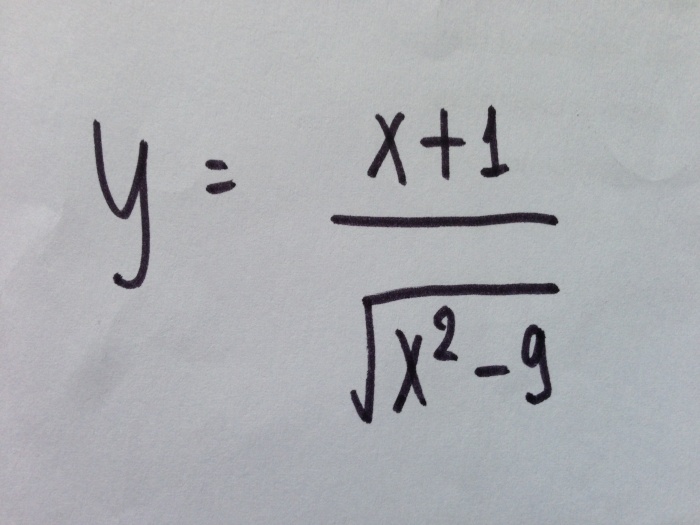 y = (x+1)/√(x²-9)